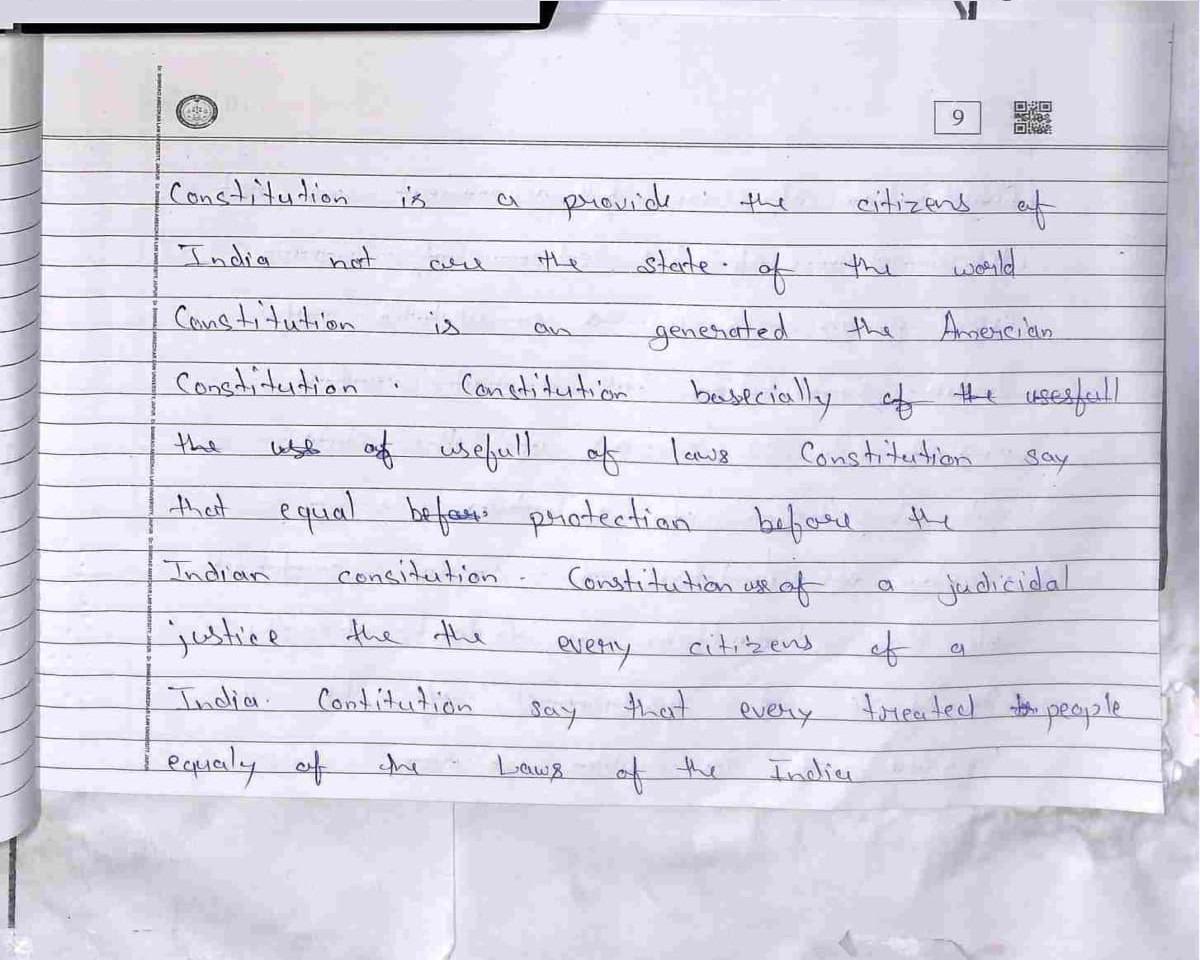 9
Constitution is a provide the citizens of
India not are the state of the world
Constitution is an generated the Amercian
Constitution . Constitution basecially of the usesfull
the use of usefull of laws Constitution say
that equal before protection before the
Indian consitution . Constitution use of a judicidal
justice the the every citizens of a
India. Contitution say that every treated people
equaly of the Laws of the India